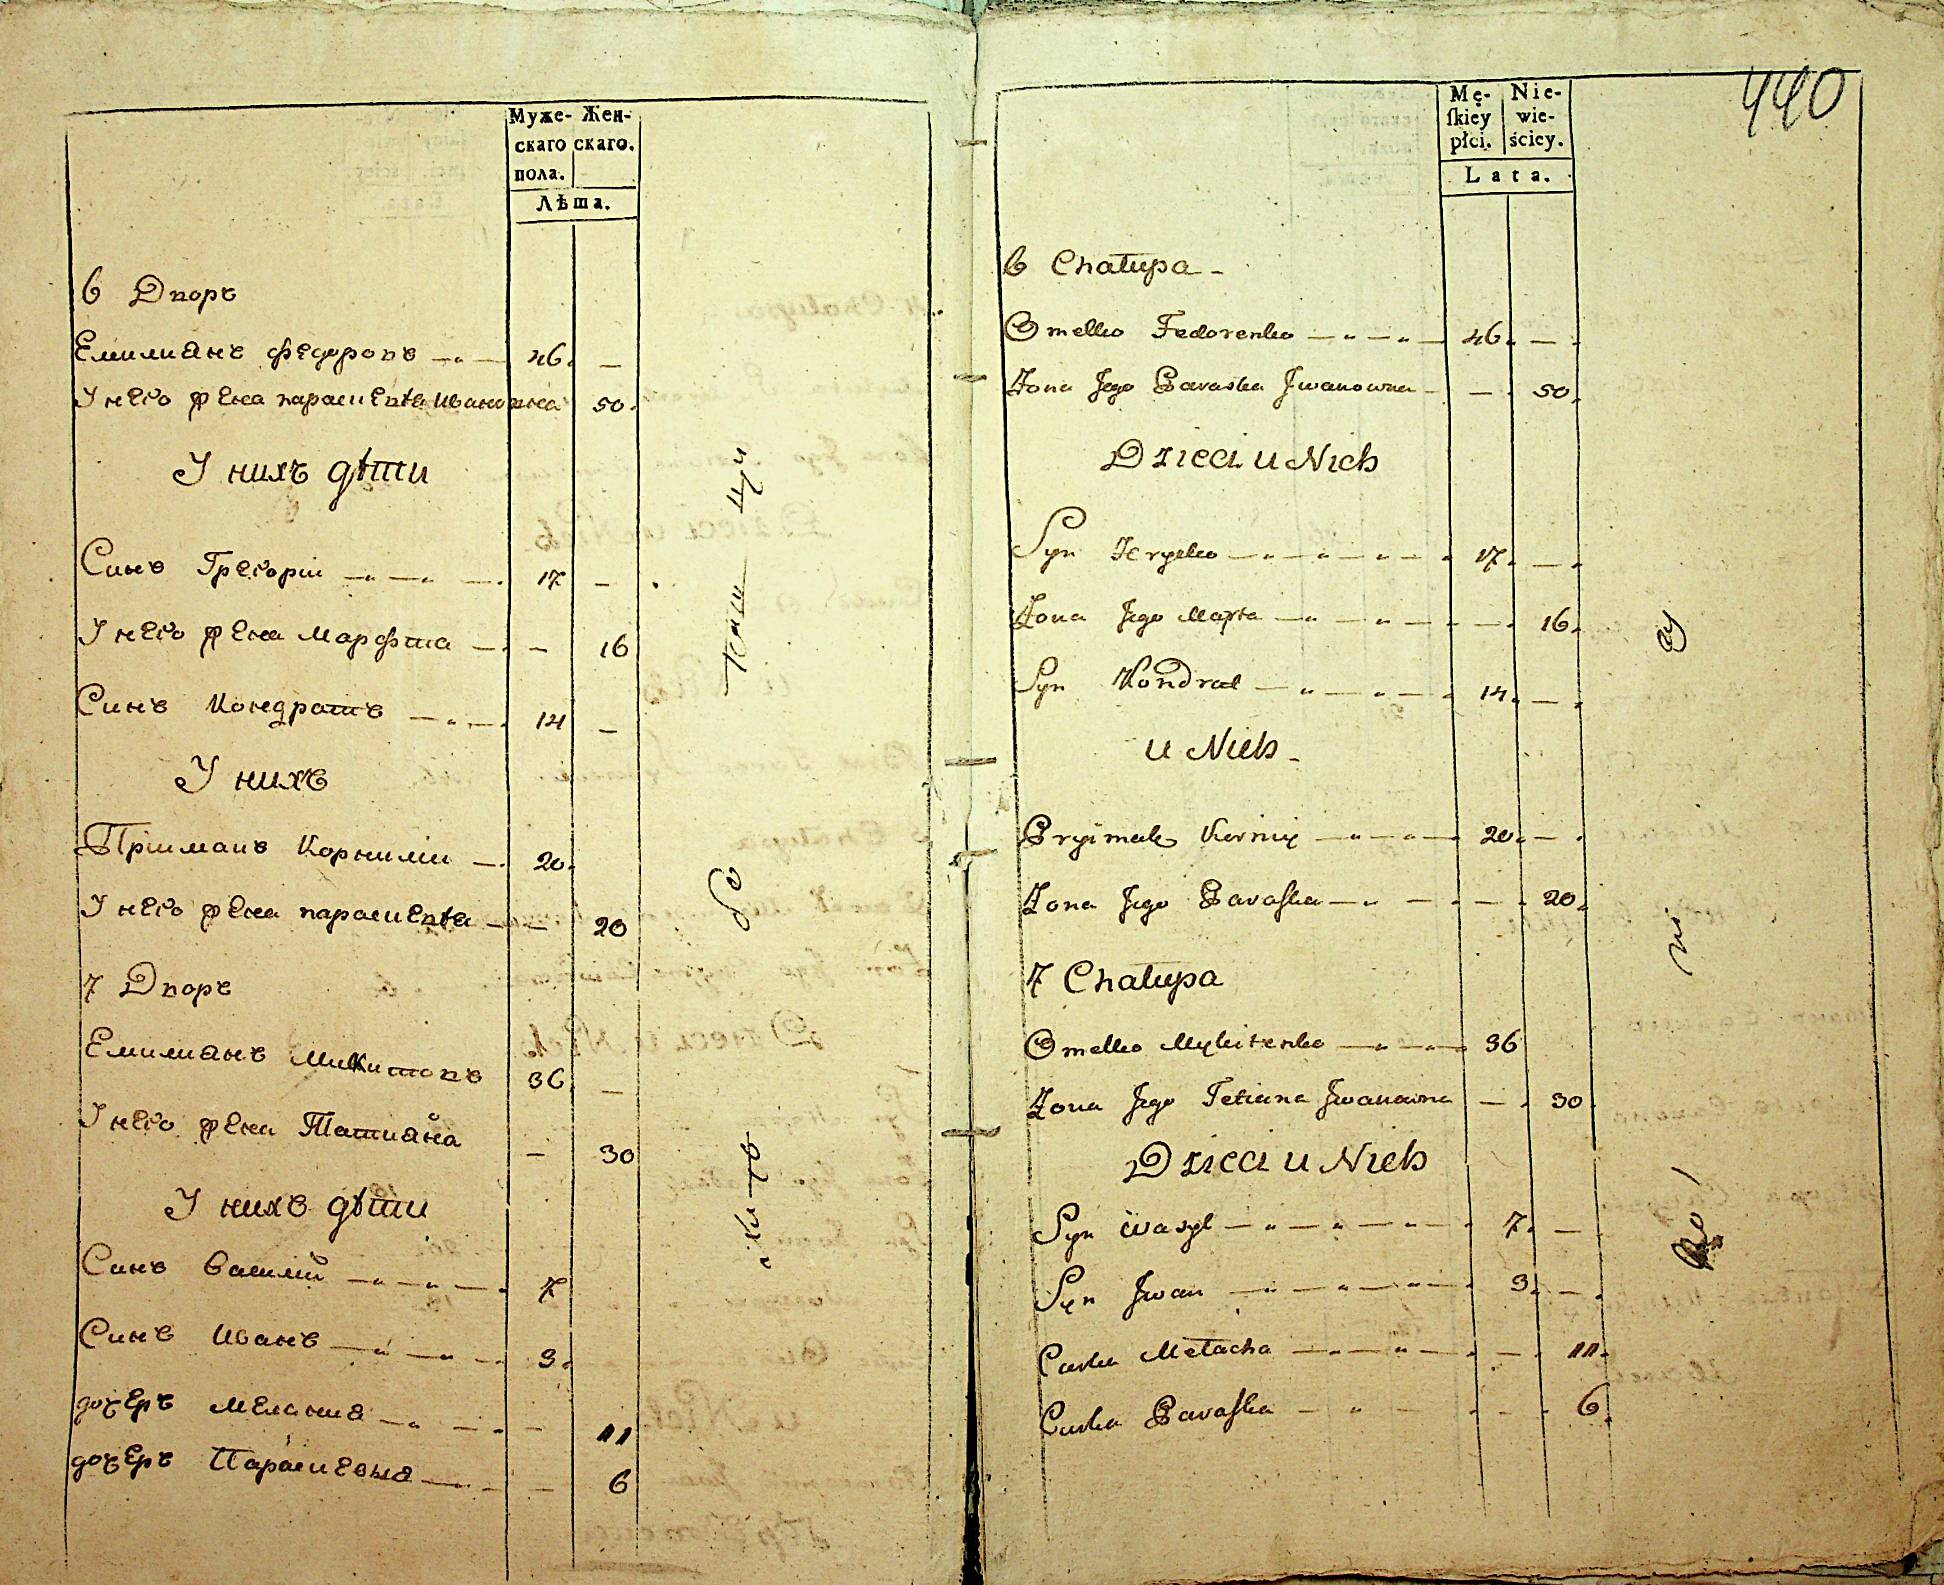 Муже- Жен-
скаго скаго.
пола.
Лѣта.
6 Дворъ
Емилианъ Федоровъ 46. —
У него жена Параскевіа Ивановна 50.
У нихъ дѣти
Синъ Григорій 17 —
У него жена Марфта — 16
Синъ Кондратъ 14 —
У нихъ
Пріимакъ Корнилій 20.
У него жена Параскевіа — 20
7 Дворъ
Емилианъ Микитовъ 36. —
У него жена Татиана — 30
У нихъ дѣти
Синъ Василій 7
Синъ Иванъ 3.
дочеръ Мелания — 11
дочеръ Параскевия — 6
440
Mę- Nie-
ſkiey wie-
płci. ściey.
Lata.
6 Chałupa
Omelko Fedorenko 46. —
Żona Jego Paraska Jwanowna — 50.
Dzieci u Nich
Syn Hrycko 17. —
Żona Jego Marta — 16.
Syn Kondrat 14. —
u Nich
Pryimak Korniy 20. —
Żona Jego Paraſka — 20.
7 Chałupa
Omelko Mykitenko 36
Żona Jego Tetiana Jwanowna — 30
Dzieci u Nich
Syn Wasyl 7. —
Syn Jwan 3. —
Curka Mełacha — 11.
Curka Paraſka — 6.